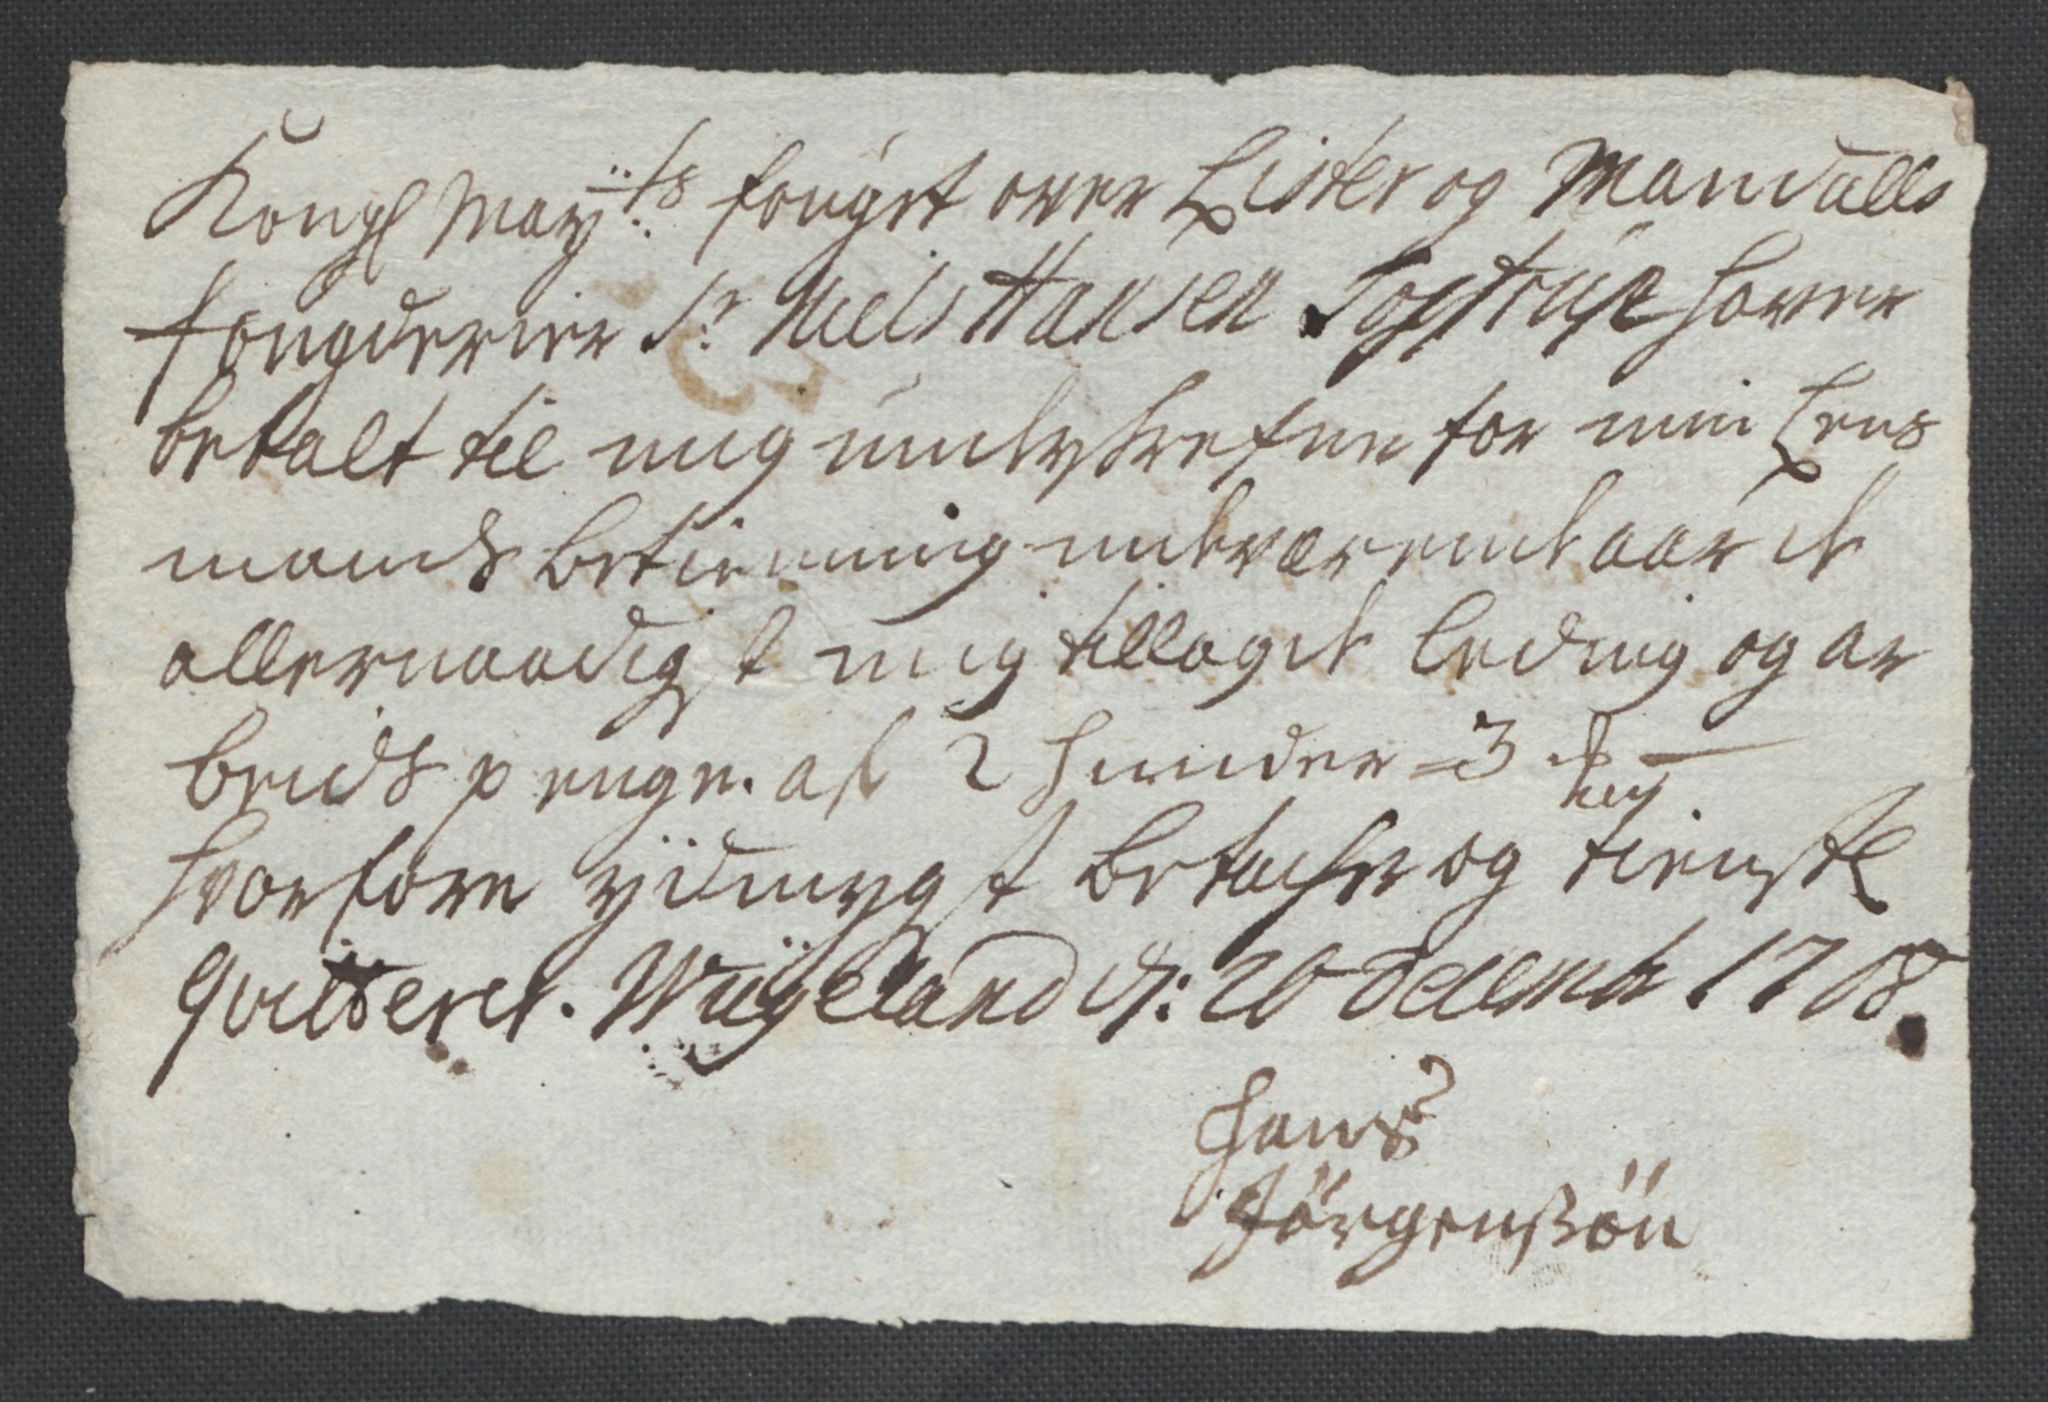 Kongl May:ts fougit over Lister og Mandalls
fougderier Sr. Niels Hansen Toxstrüp hafver
betalt til mig underskrefne for min Lens
mands betienning indværende aar it
allernaadigst mig tillagit leding og ar
beids penge. af 2 hunder 3
hvorfore ÿdmygst betacher og tienstl
qvitterer. Wiigeland d: 20 decemb 1708.
Hans
Jörgensön